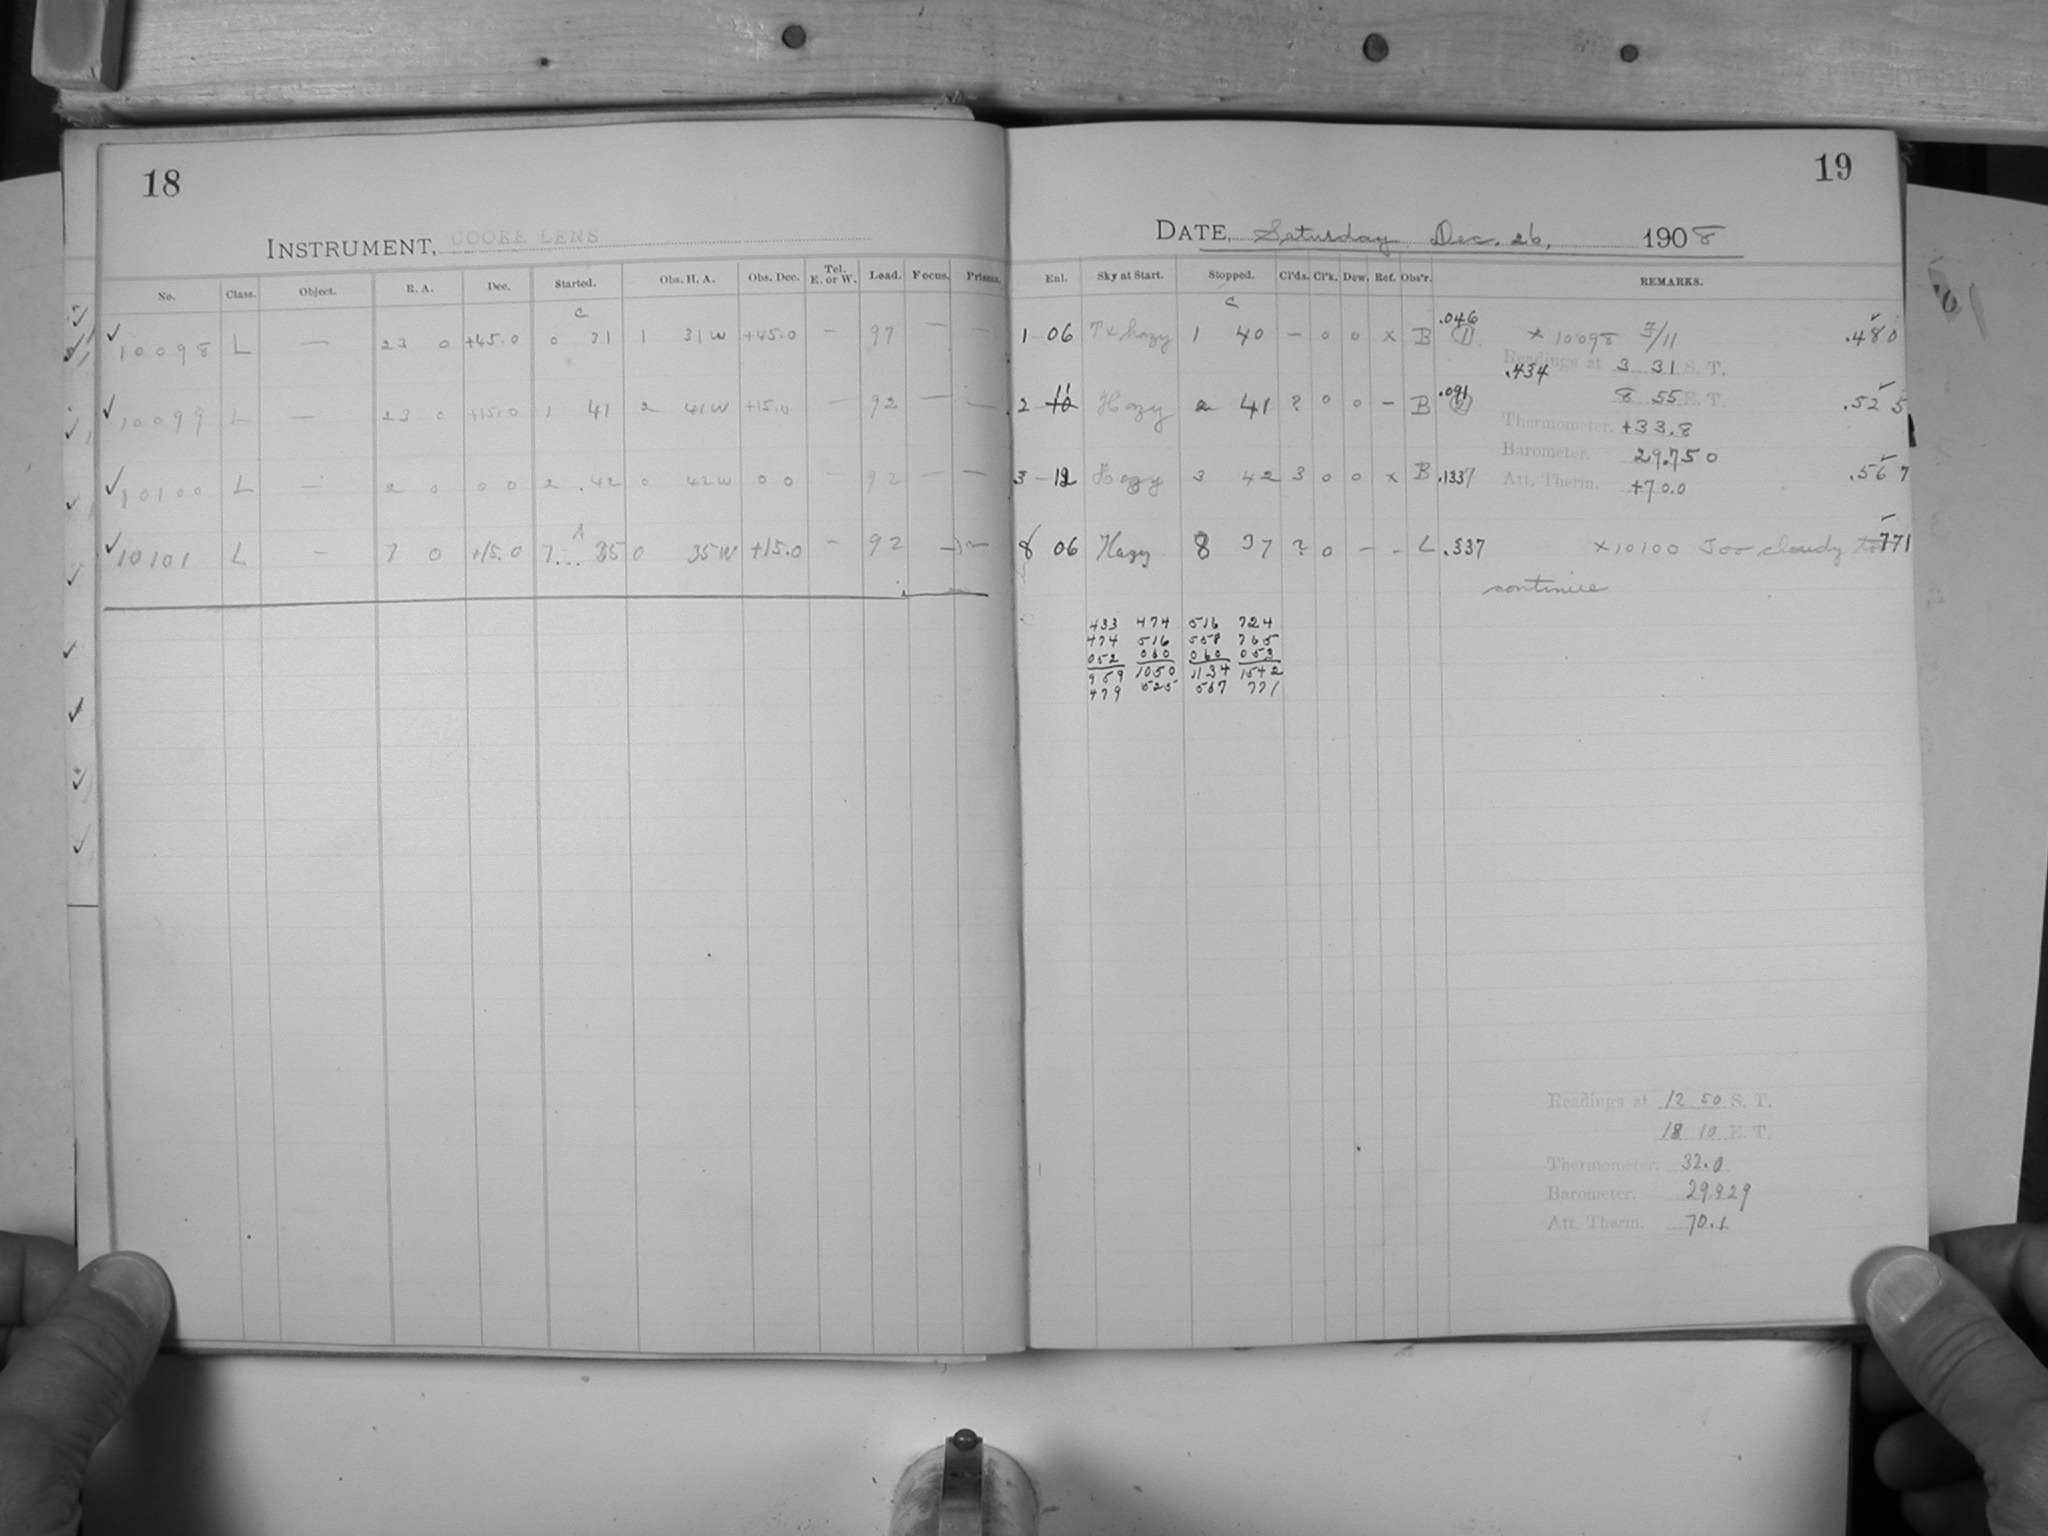 18
INSTRUMENT, COOKE LENS
No. Class. Object. R. A. Dec. Started. Obs. H. A. Obs. Dec. Tel. E. or W. Load. Focus. Prisms.
c
✓ 10098 L — 23 0 +45.0 0 31 1 31 W +45.0 — 97 — —
✓ 10099 L — 23 0 +15.0 1 41 2 41 W +15.0 — 92 — —
✓ 10100 L — 2 0 0 0 2 42 0 42 W 0 0 92 — —
A
✓ 10101 L — 7 0 +15.0 7 35 0 35 W +15.0 — 92 — —
19
DATE, Saturday Dec. 26, 1908
Enl. Sky at Start. Stopped. Cl'ds. Cl'k. Dew. Ref. Obs'r. REMARKS.
c
1 06 hazy 1 40 — 0 0 x B .046 (1) x 10098 .480
Readings at 3 31 S. T.
.434
2 Hazy 2 41 ? 0 0 – B .091 (2) 8 55 E. T. .525
Thermometer, +33.8
Barometer. 29.750
3 12 Hazy 3 42 3 0 0 x B .1337 Att. Therm. +70.0 .567
8 06 Hazy 8 37 ? 0 – – L .337 x 10100 Too cloudy to .771
continue
433 474 516 724
474 516 558 765
052 060 060 053
959 1050 1134 1542
479 525 567 771
Readings at 12 50 S. T.
18 10 E. T.
Thermometer. 32.0
Barometer. 29.829
Att. Therm. 70.1